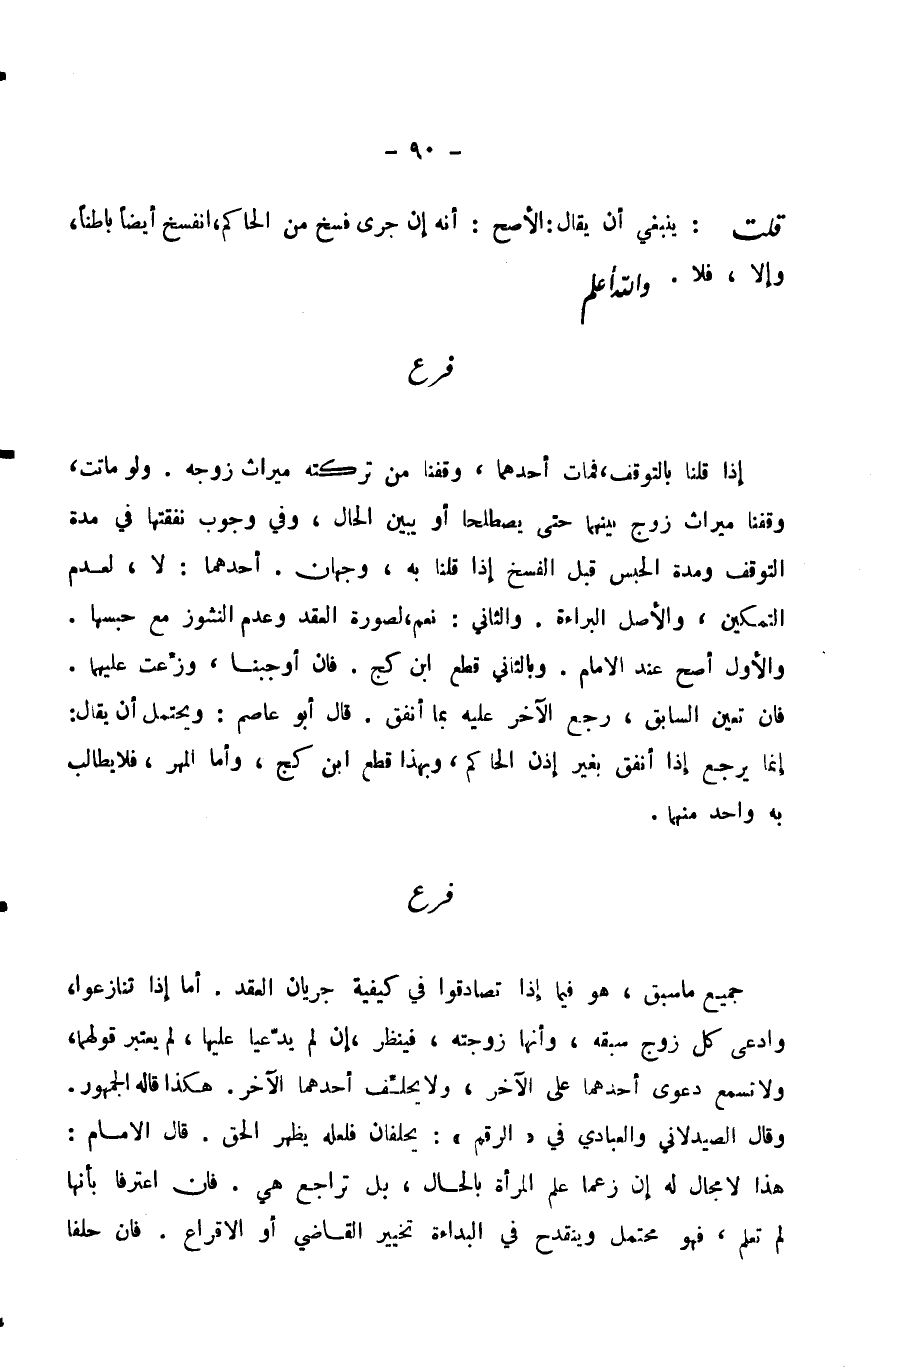 - ٩٠ -
قلت : ينبغي أن يقال : الأصح : أنه إن جرى فسخ من الحاكم ، انفسخ أيضاً باطناً ،
وإلا ، فلا . والله أعلم
فرع
إذا قلنا بالتوقف ، فمات أحدهما ، وقفنا من تركته ميراث زوجه . ولو ماتت ،
وقفنا ميراث زوج بينهما حتى يصطلحا أو يبين الحال ، وفي وجوب نفقتها في مدة
التوقف ومدة الحبس قبل الفسخ إذا قلنا به ، وجهان . أحدهما : لا ، لعدم
التمكين ، والأصل البراءة . والثاني : نعم ، لصورة العقد وعدم النشوز مع حبسها .
والأول أصح عند الامام . وبالثاني قطع ابن كج . فان أوجبنا ، وزّعت عليهما .
فان تعين السابق ، رجع الآخر عليه بما أنفق . قال أبو عاصم : ويحتمل أن يقال :
إنما يرجع إذا أنفق بغير إذن الحاكم ، وبهذا قطع ابن كج ، وأما المهر ، فلا يطالب
به واحد منهما .
فرع
جميع ماسبق ، هو فيما إذا تصادقوا في كيفية جريان العقد . أما إذا تنازعوا ،
وادعى كل زوج سبقه ، وأنها زوجته ، فينظر ، إن لم يدّعيا عليها ، لم يعتبر قولهما ،
ولا تسمع دعوى أحدهما على الآخر ، ولا يحلّف أحدهما الآخر . هكذا قاله الجمهور .
وقال الصيدلاني والعبادي في « الرقم » : يحلفان فلعله يظهر الحق . قال الامام :
هذا لا مجال له إن زعما علم المرأة بالحال ، بل تراجع هي . فان اعترفا بأنها
لم تعلم ، فهو محتمل وينقدح في البداءة تخيير القاضي أو الاقراع . فان حلفا